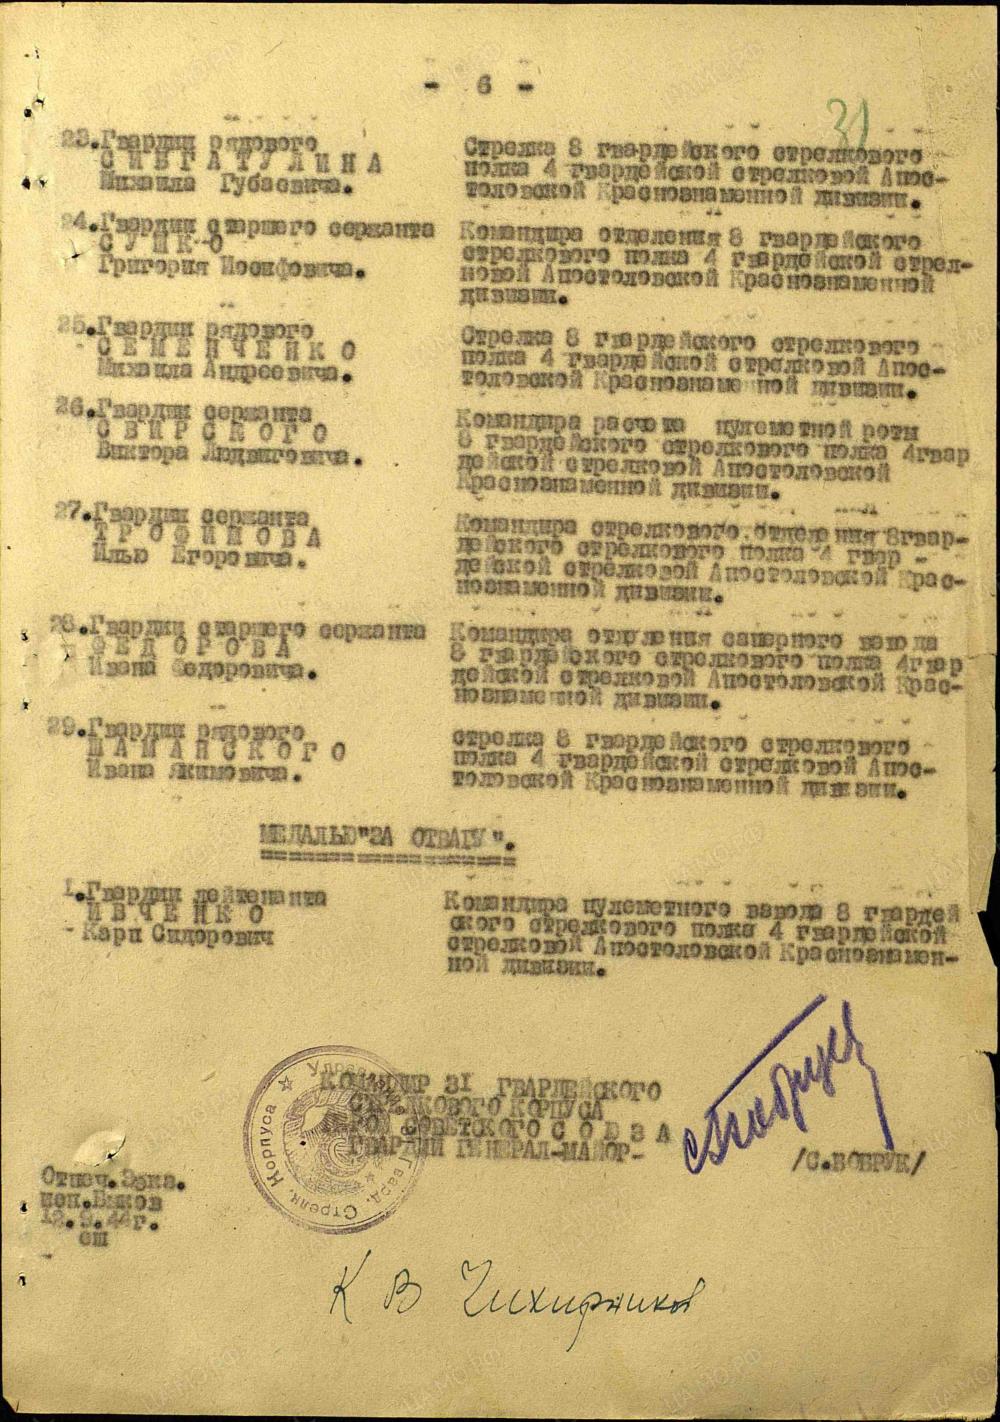 - 6 -
31
23.Гвардии рядового
СИБГАТУЛИНА
Михаила Губаевича.
Стрелка 8 гвардейского стрелкового
полка 4 гвардейской стрелковой Апос-
толовской Краснознаменной дивизии.
24.Гвардии старшего сержанта
СУШКО
Григория Иосифовича.
Командира отделения 8 гвардейского
стрелкового полка 4 гвардейской стрел-
ковой Апостоловской Краснознаменной
дивизии.
25.Гвардии рядового
СЕМЕНЧЕНКО
Михаила Андреевича.
Стрелка 8 гвардейского стрелкового
полка 4 гвардейской стрелковой Апос-
толовской Краснознаменной дивизии.
26.Гвардии сержанта
СВИРСКОГО
Виктора Людвиговича.
Командира расчета пулеметной роты
8 гвардейского стрелкового полка 4гвар
дейской стрелковой Апостоловской
Краснознаменной дивизии.
27.Гвардии сержанта
ТРОФИМОВА
Илью Егоровича.
Командира стрелкового отделения 8гвар-
дейского стрелкового полка 4 гвар -
дейской стрелковой Апостоловской Крас-
нознаменной дивизии.
28.Гвардии старшего сержанта
ФЕДОРОВА
Ивана Федоровича.
Командира отделения саперного взвода
8 гвардейского стрелкового полка 4гвар
дейской стрелковой Апостоловской Крас-
нознаменной дивизии.
29.Гвардии рядового
ШАМАНСКОГО
Ивана Якимовича.
стрелка 8 гвардейского стрелкового
полка 4 гвардейской стрелковой Апос-
толовской Краснознаменной дивизии.
МЕДАЛЬЮ"ЗА ОТВАГУ".
1.Гвардии лейтенанта
ИВЧЕНКО
Карп Сидорович
Командира пулеметного взвода 8 гвардей
ского стрелкового полка 4 гвардейской
стрелковой Апостоловской Краснознамен-
ной дивизии.
КОМАНДИР 31 ГВАРДЕЙСКОГО
СТРЕЛКОВОГО КОРПУСА
ГЕРОЙ СОВЕТСКОГО СОЮЗА
ГВАРДИИ ГЕНЕРАЛ-МАЙОР-
/С.БОБРУК/
Отпеч.3экз.
исп.Быков
12.9.44г.
сш